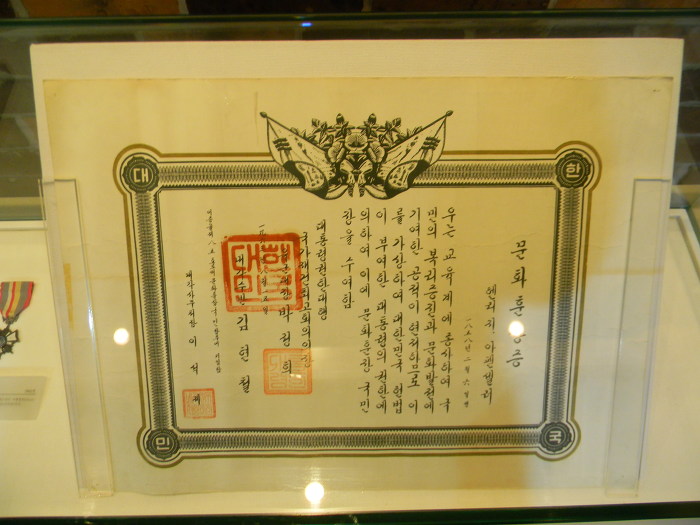 대한민국
문화훈장증
헨리 지 아펜셀러
우는 교육계에 종사하여 국
민의 복리증진과 문화발전에
기여한 공적이 현저하므로 이
를 가상하여 대한민국 헌법
이 부여한 대통령의 권한에
의하여 이에 문화훈장 국민
장을 수여함
대통령권한대행
국가재건최고회의의장
육군대장 박정희
내각수반 김현철
내각사무처장 이석제